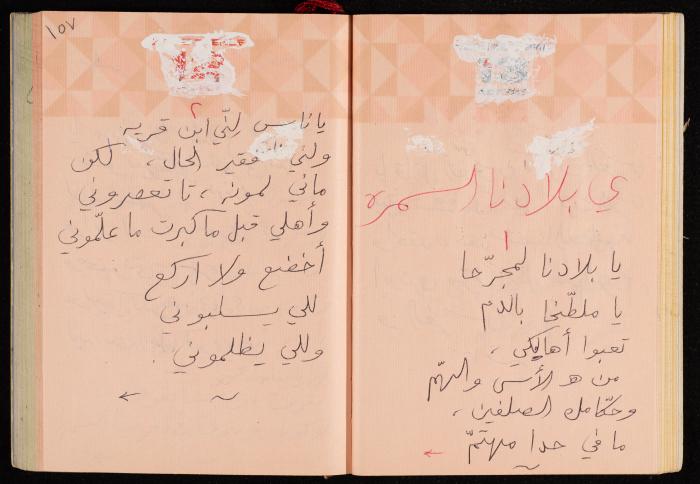 ي بلادنا السمره
١
يا بلادنا لمجرّحا
يا ملطّخا بالدم
تعبوا أهاليكي ،
من هـ الأسى والهمّ
وحكّامك الصلفين ،
ما في حدا مهتمّ
١٥٧
٢
يا ناس لنّي ابن قريه
ولني فقير الحال ، لكن
ماني لمونه ، تا تعصروني
وأهلي قبل ما كبرت ما علّموني
أخضع ولا اركع
للي يسلبوني
وللي يظلموني .